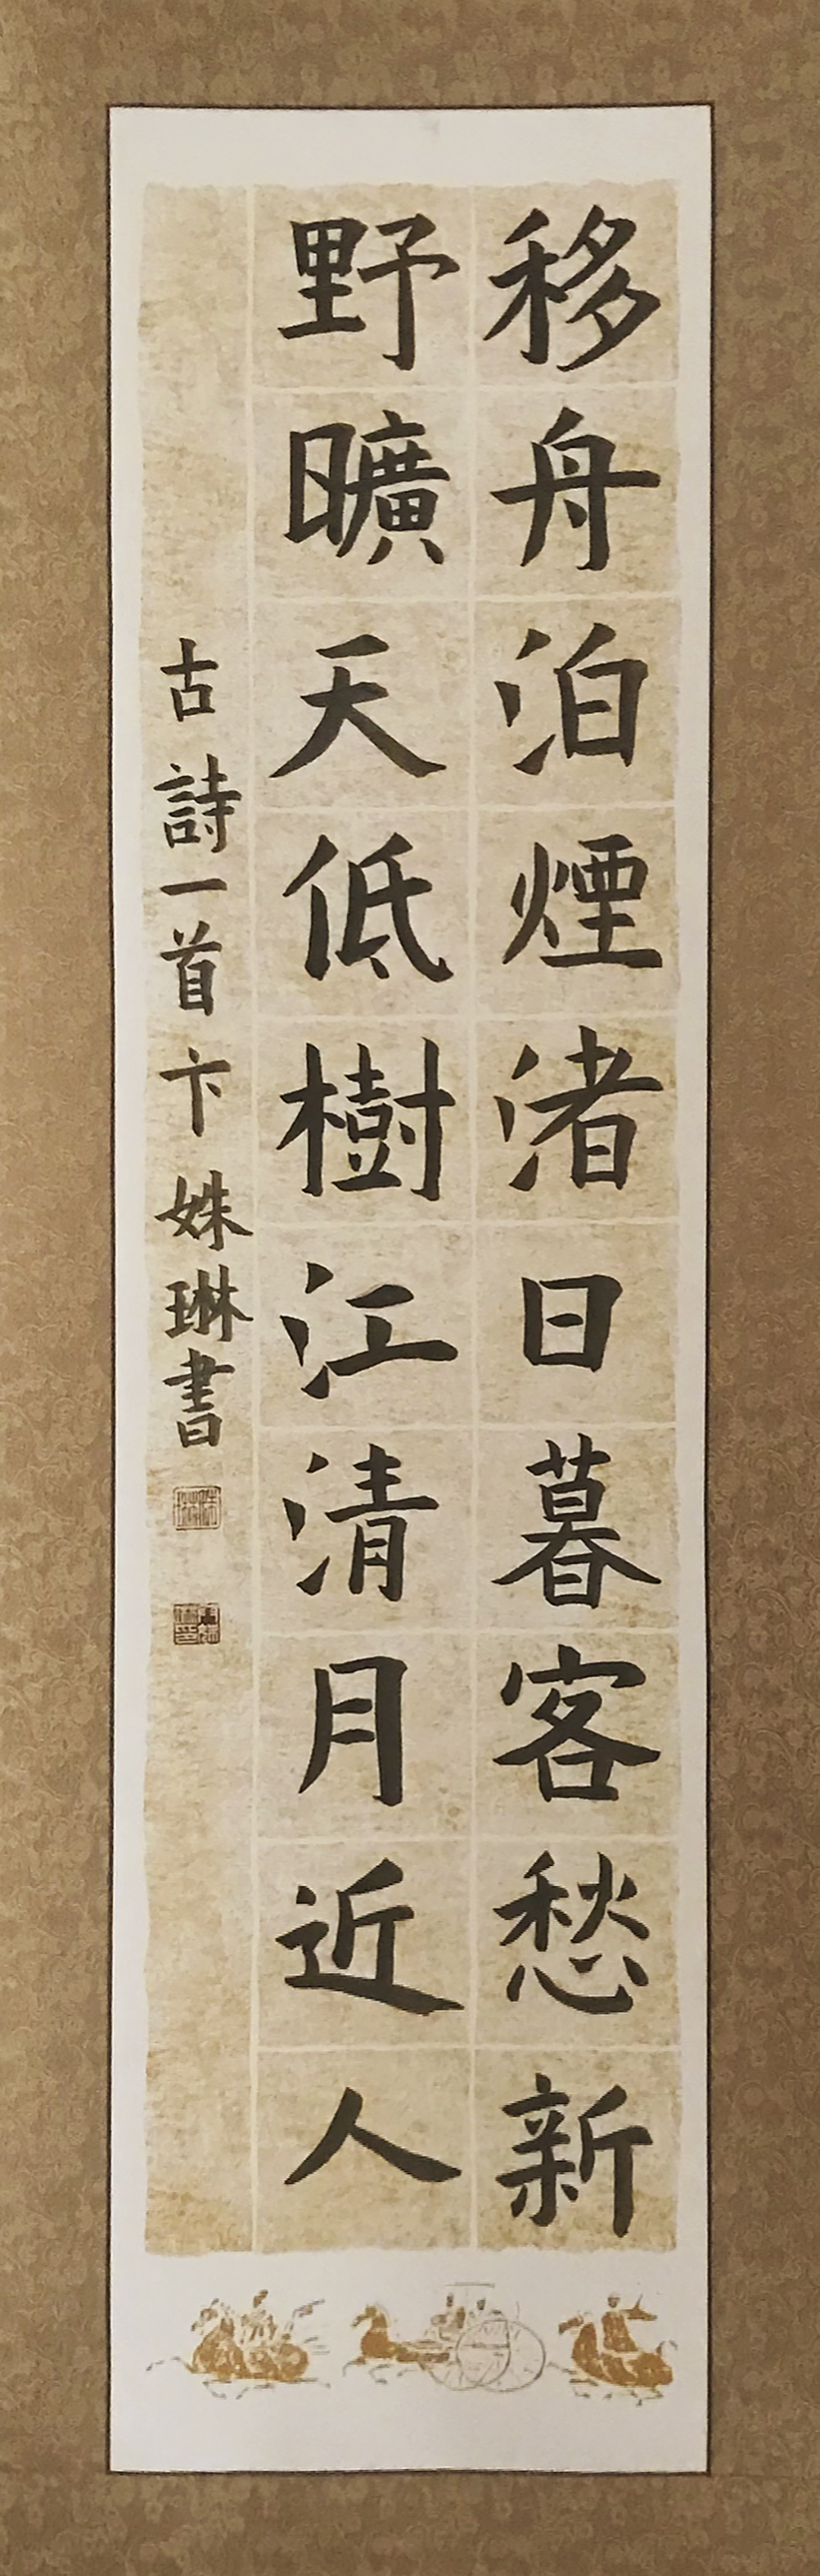 移舟泊煙渚日暮客愁新
野曠天低樹江清月近人
古詩一首 卞姝琳書